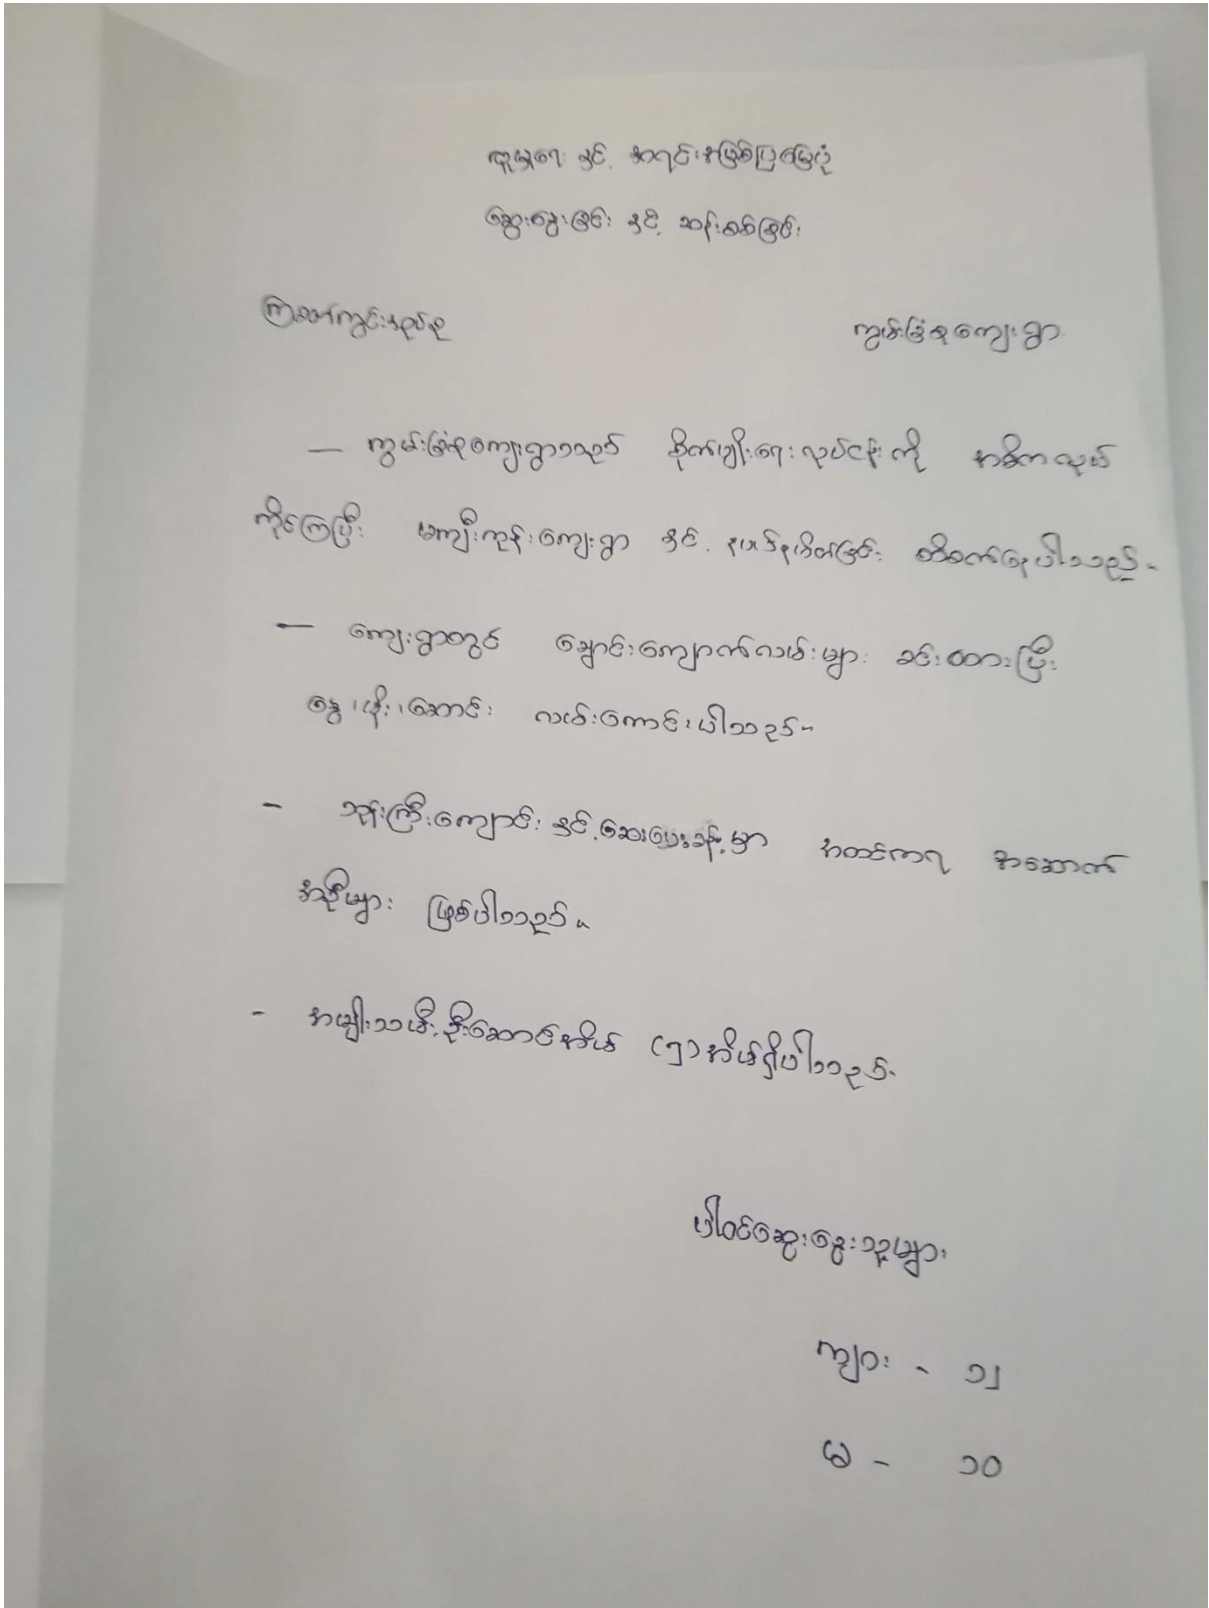 လူမှုရေး နှင့် အရင်းအမြစ်ပြမြေပုံ
ဆွေးနွေးခြင်း နှင့် ဆန်းစစ်ခြင်း
ကြခတ်ကွင်းအုပ်စု
ကွမ်းခြံစုကျေးရွာ
— ကွမ်းခြံစုကျေးရွာသည် စိုက်ပျိုးရေးလုပ်ငန်းကို အဓိကလုပ်
ကိုင်ကြပြီး မကျီးကုန်းကျေးရွာ နှင့် နယ်နိမိတ်ခြင်း ထိစပ်နေပါသည်။
— ကျေးရွာတွင် ချောင်းကျောက်လမ်းများ ခင်းထားပြီး
နွေ ၊မိုး ၊ဆောင်း လမ်းကောင်းပါသည်။
- ဘုန်းကြီးကျောင်း နှင့် ဆေးပေးခန်းမှာ အထင်ကရ အဆောက်
အအုံများ ဖြစ်ပါသည်။
- အမျိုးသမီးဦးဆောင်အိမ် (၅)အိမ်ရှိပါသည်။
ပါဝင်ဆွေးနွေးသူများ
ကျား - ၁၂
မ - ၁၀